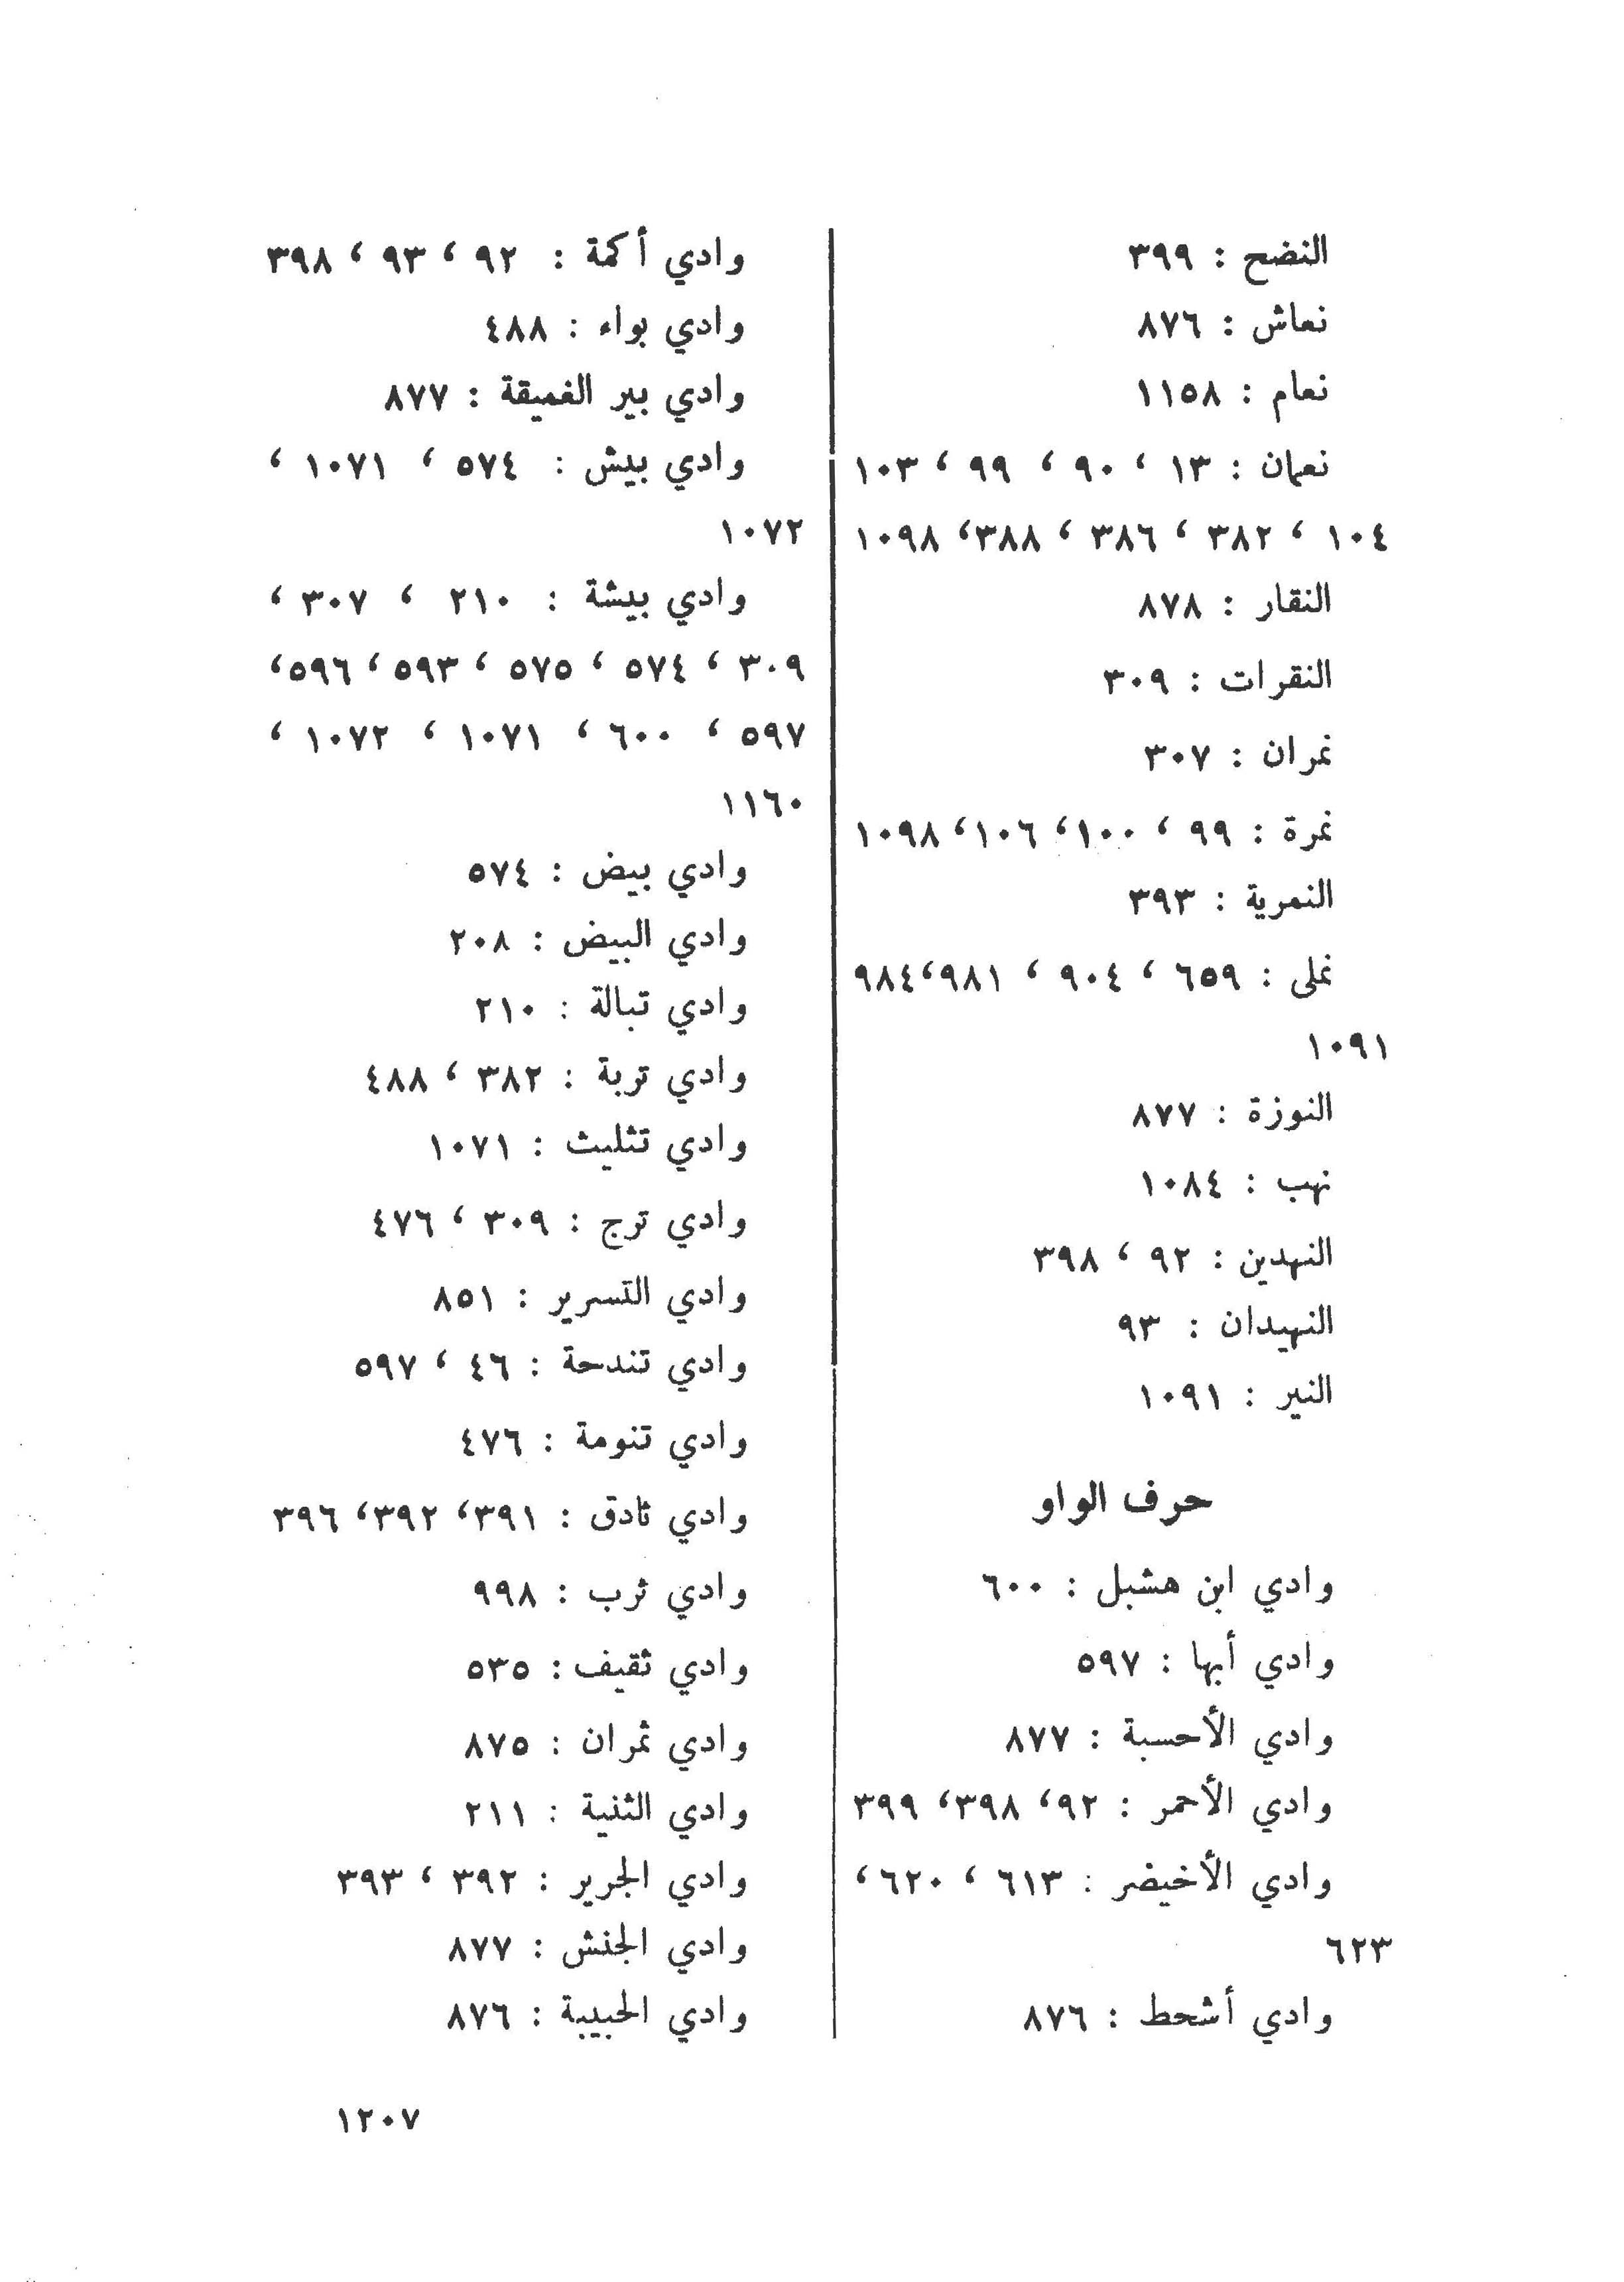 النضح : ٣٩٩
نعاش : ٨٧٦
نعام : ١١٥٨
نعمان : ١٣ ، ٩٠ ، ٩٩ ، ١٠٣
١٠٤ ، ٣٨٢ ، ٣٨٦ ، ٣٨٨، ١٠٩٨
النقار : ٨٧٨
النقرات : ٣٠٩
نمران : ٣٠٧
نمرة : ٩٩ ، ١٠٠، ١٠٦، ١٠٩٨
النمرية : ٣٩٣
نملى : ٦٥٩ ، ٩٠٤ ، ٩٨١،٩٨٤
١٠٩١
النوزة : ٨٧٧
نهب : ١٠٨٤
النهدين : ٩٢ ، ٣٩٨
النهيدان : ٩٣
النير : ١٠٩١
حرف الواو
وادي ابن هشبل : ٦٠٠
وادي أبها : ٥٩٧
وادي الأحسبة : ٨٧٧
وادي الأحمر : ٩٢، ٣٩٨، ٣٩٩
وادي الأخيضر : ٦١٣ ، ٦٢٠ ،
٦٢٣
وادي أشحط : ٨٧٦
وادي أكمة : ٩٢ ، ٩٣ ، ٣٩٨
وادي بواء : ٤٨٨
وادي بير الغميقة : ٨٧٧
وادي بيش : ٥٧٤ ، ١٠٧١ ،
١٠٧٢
وادي بيشة : ٢١٠ ، ٣٠٧ ،
٣٠٩ ، ٥٧٤ ، ٥٧٥ ، ٥٩٣ ، ٥٩٦،
٥٩٧ ، ٦٠٠ ، ١٠٧١ ، ١٠٧٢ ،
١١٦٠
وادي بيض : ٥٧٤
وادي البيض : ٢٠٨
وادي تبالة : ٢١٠
وادي تربة : ٣٨٢ ، ٤٨٨
وادي تثليث : ١٠٧١
وادي ترج : ٣٠٩ ، ٤٧٦
وادي التسرير : ٨٥١
وادي تندحة : ٤٦ ، ٥٩٧
وادي تنومة : ٤٧٦
وادي ثادق : ٣٩١، ٣٩٢، ٣٩٦
وادي ثرب : ٩٩٨
وادي ثقيف : ٥٣٥
وادي ثمران : ٨٧٥
وادي الثنية : ٢١١
وادي الجرير : ٣٩٢ ، ٣٩٣
وادي الجنش : ٨٧٧
وادي الحبيبة : ٨٧٦
١٢٠٧